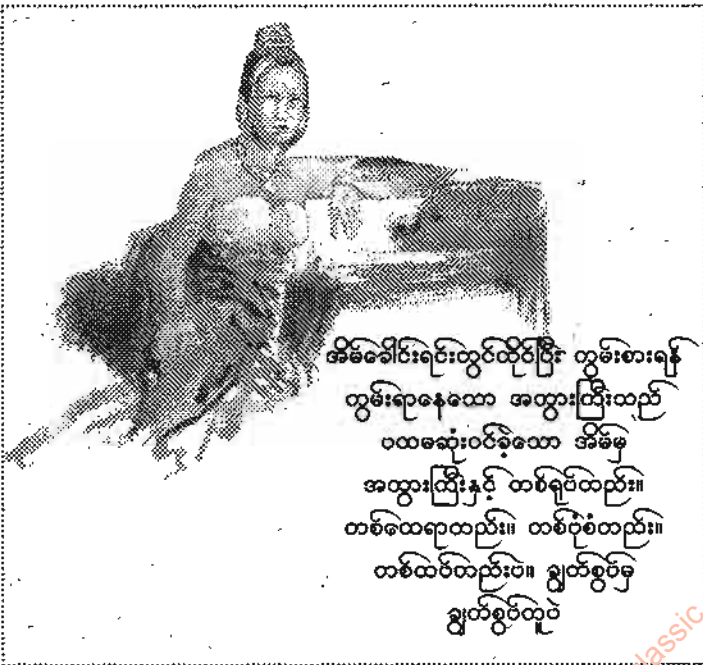 အိမ်ခေါင်းရင်းတွင်ထိုင်ပြီး ကွမ်းစားရန်
ကွမ်းရာနေသော အဘွားကြီးသည်
ပထမဆုံးဝင်ခဲ့သော အိမ်မှ
အဘွားကြီးနှင့် တစ်ရုပ်တည်း။
တစ်ထေရာတည်း။ တစ်ပုံစံတည်း။
တစ်ထပ်တည်းပ။ ချွတ်စွပ်မှ
ချွတ်စွပ်တူပဲ
lassic